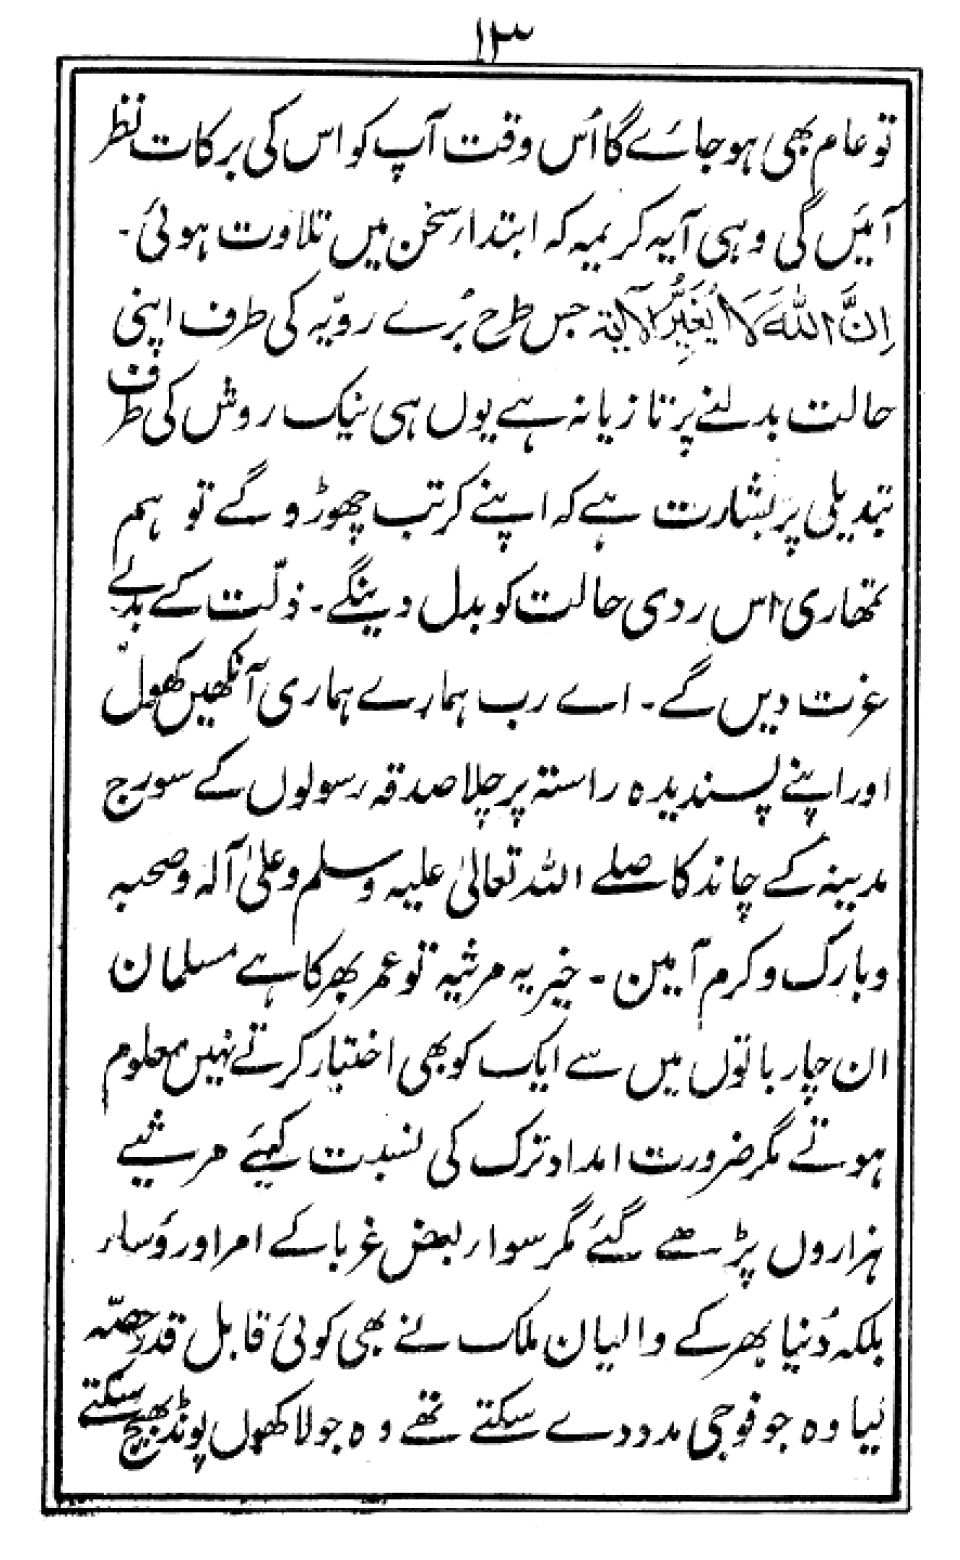 ۱۳
تو عام بھی ہوجائے گا اُس وقت آپ کو اس کی برکات نظر
آئیں گی وہی آیہ کریمہ کہ ابتدار سخن میں تلاوت ہوئی۔
اِنَّ اللّٰہَ لَا یُغَیِّرُ الآیۃ جس طرح بُرے رویّہ کی طرف اپنی
حالت بدلنے پر تازیانہ ہے یوں ہی نیک روش کی طرف
تبدیلی پر بشارت ہے کہ اپنے کرتب چھوڑو گے تو ہم
تمھاری اس ردی حالت کو بدل دینگے۔ ذلّت کے بدلے
عزت دیں گے۔ اے رب ہمارے ہماری آنکھیں کھول
اور اپنے پسندیدہ راستۃ پر چلا صدقہ رسولوں کے سورج
مدینہ کے چاند کا صلے اللہ تعالیٰ علیہ وسلم وعلیٰ آلہ وصحبہ
وبارک وکرم آمین۔ خیر یہ مرثیہ تو عمر بھر کا ہے مسلمان
ان چار باتوں میں سے ایک کو بھی اختیار کرتے نہیں معلوم
ہوتے مگر ضرورت امداد ترک کی نسبت کہیئے مرثیے
ہزاروں پڑھے گئے مگر سوار بعض غربا کے امرا ور وُسار
بلکہ دُنیا بھر کے والیان ملک نے بھی کوئی قابل قدر حصّہ
لیا وہ جو فوجی مدد دے سکتے تھے وہ جو لاکھوں پونڈ بھیج سکتے